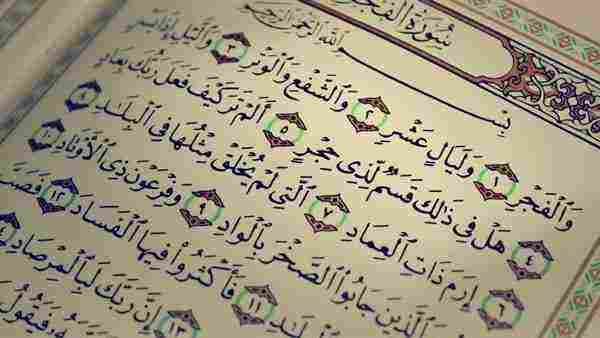 سُورَةُ الفَجْرِ
بِسْمِ ٱللَّهِ ٱلرَّحْمَٰنِ ٱلرَّحِيمِ
وَٱلْفَجْرِ ١ وَلَيَالٍ عَشْرٍ ٢ وَٱلشَّفْعِ وَٱلْوَتْرِ ٣ وَٱلَّيْلِ إِذَا يَسْرِ
٤ هَلْ فِى ذَٰلِكَ قَسَمٌ لِّذِى حِجْرٍ ٥ أَلَمْ تَرَ كَيْفَ فَعَلَ رَبُّكَ بِعَادٍ
٦ إِرَمَ ذَاتِ ٱلْعِمَادِ ٧ ٱلَّتِى لَمْ يُخْلَقْ مِثْلُهَا فِى ٱلْبِلَٰدِ ٨
ٱلَّذِينَ جَابُوا۟ ٱلصَّخْرَ بِٱلْوَادِ ٩ وَفِرْعَوْنَ ذِى ٱلْأَوْتَادِ ١٠
١١ فَأَكْثَرُوا۟ فِيهَا ٱلْفَسَادَ ١٢ فَصَبَّ
١٣ إِنَّ رَبَّكَ لَبِٱلْمِرْصَادِ
فَيَقُولُ